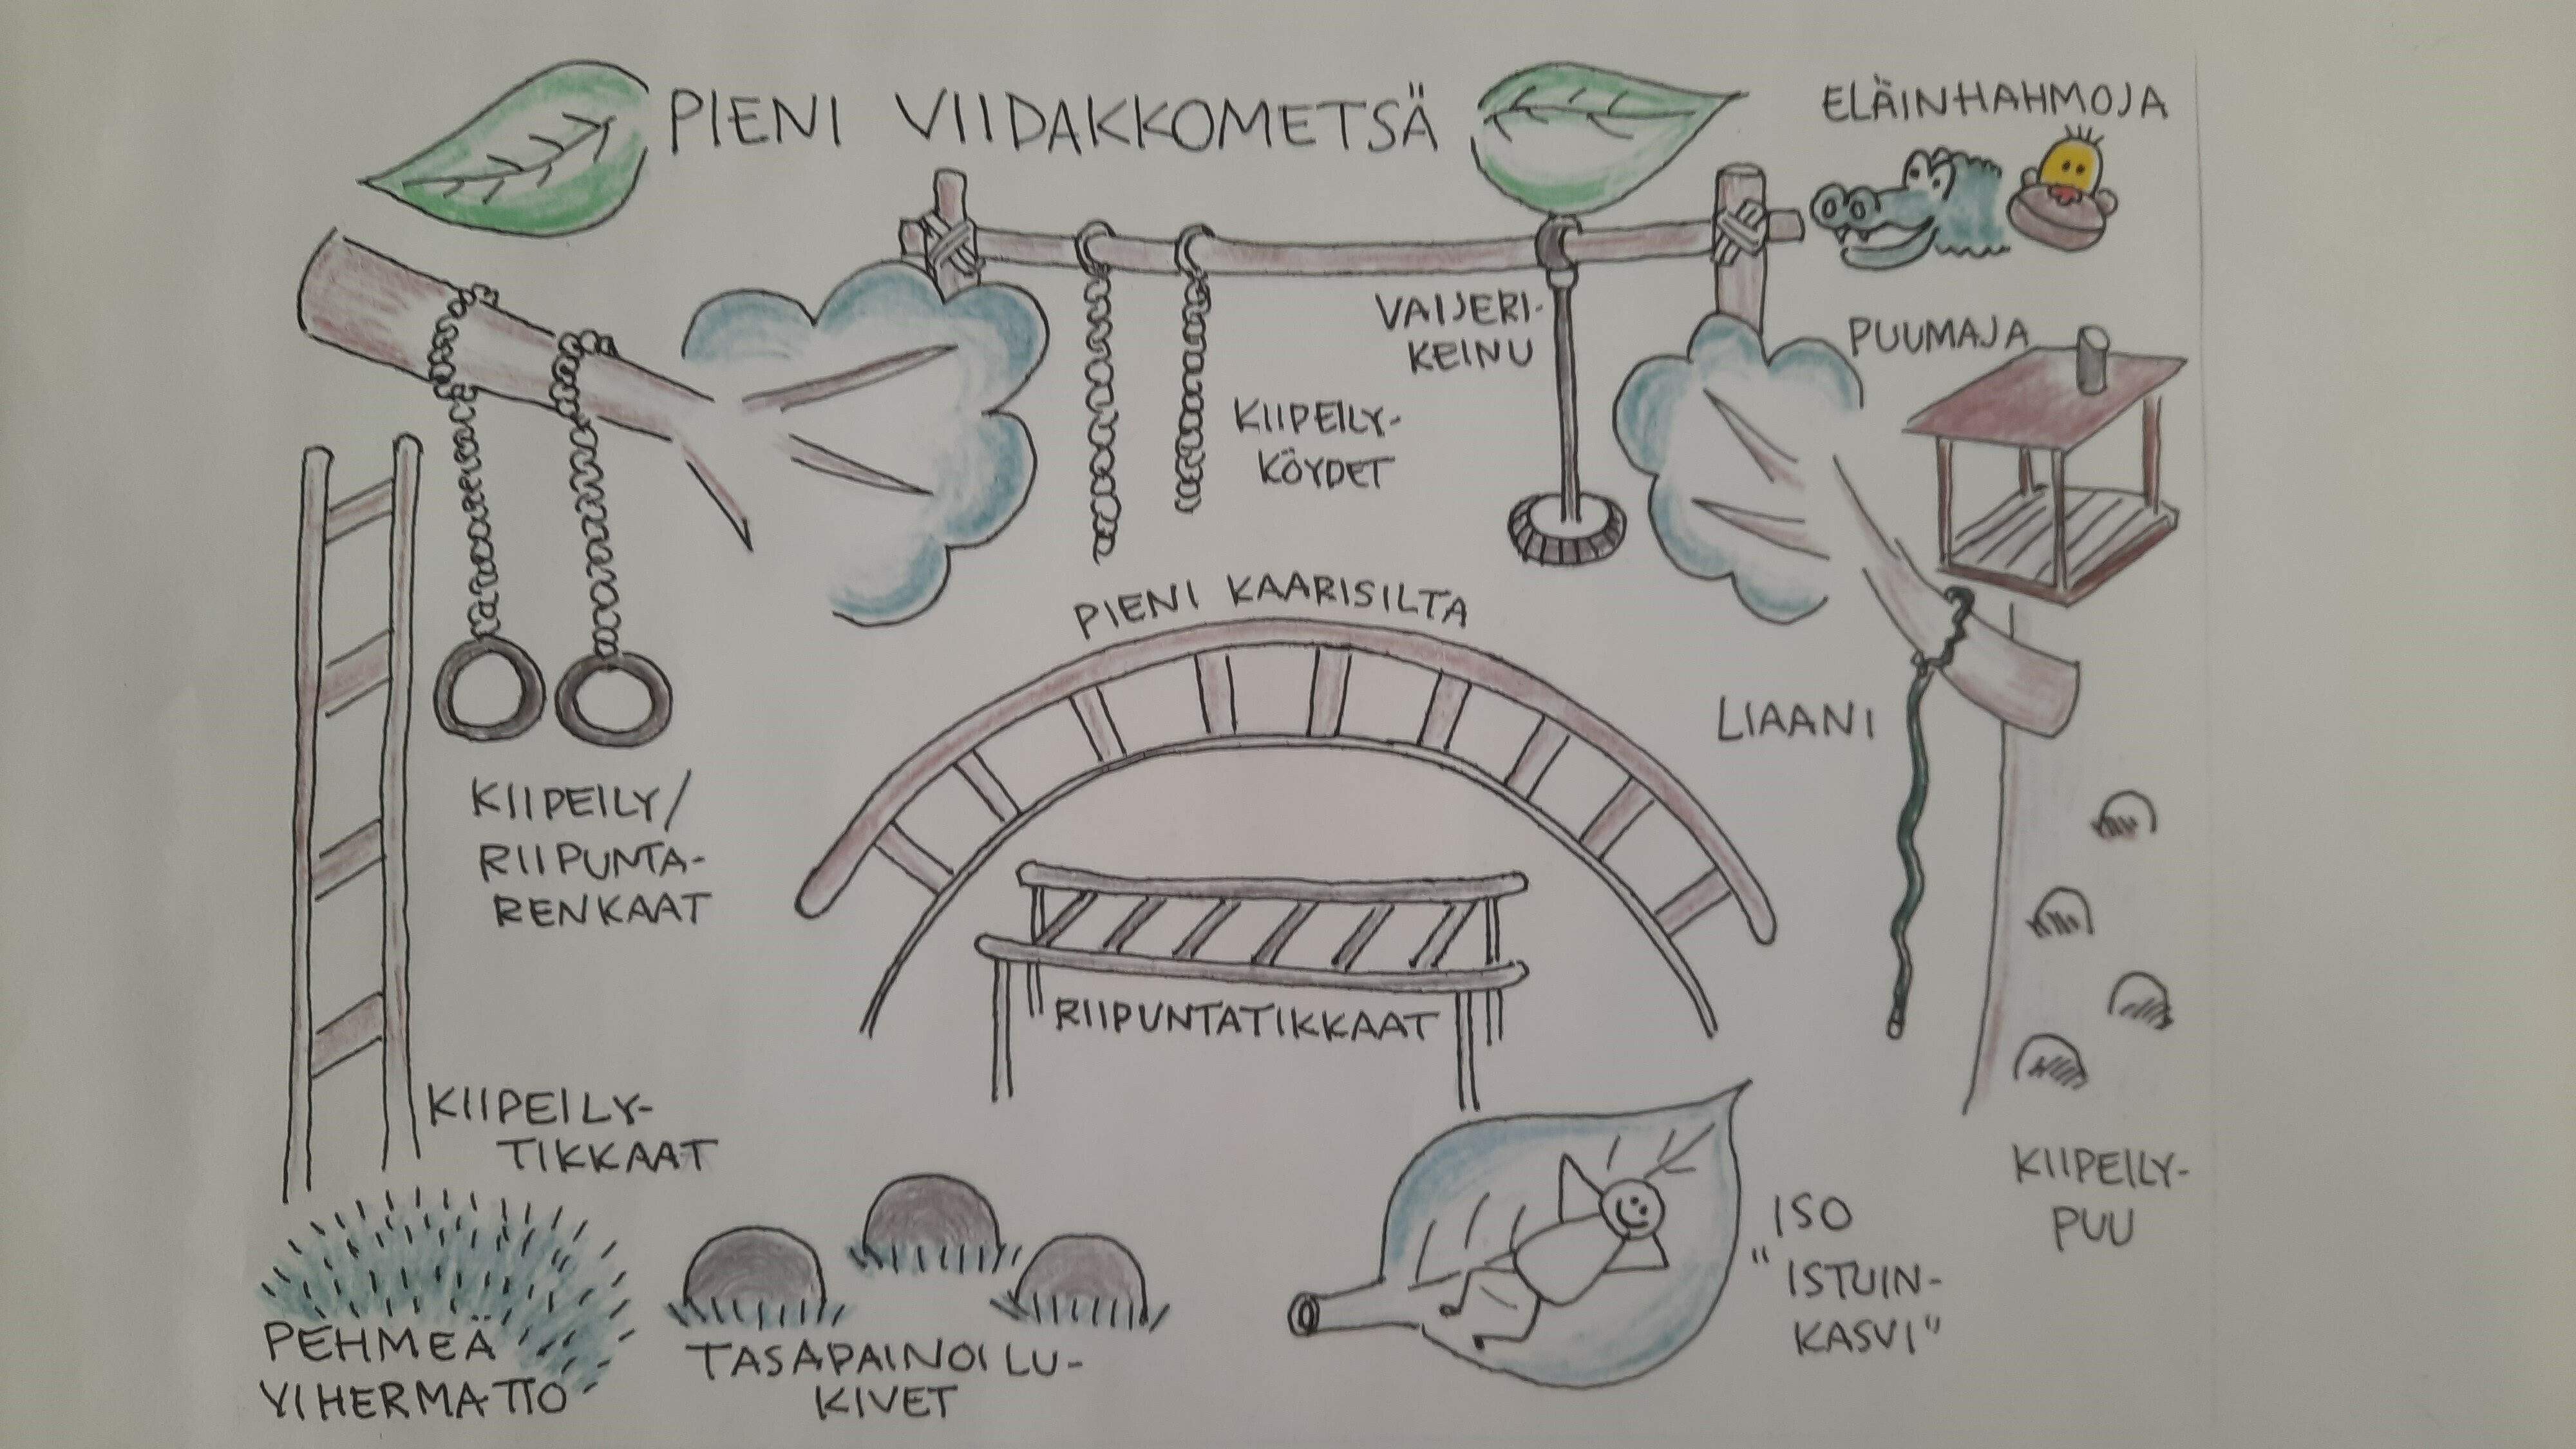 PIENI VIIDAKKOMETSÄ
ELÄINHAHMOJA
VAIJERI-
KEINU
PUUMAJA
KIIPEILY-
KÖYDET
PIENI KAARISILTA
LIAANI
KIIPEILY/
RIIPUNTA-
RENKAAT
RIIPUNTATIKKAAT
KIIPEILY-
TIKKAAT
KIIPEILY-
PUU
ISO
"ISTUIN-
KASVI"
PEHMEÄ
VIHERMATTO
TASAPAINOILU-
KIVET